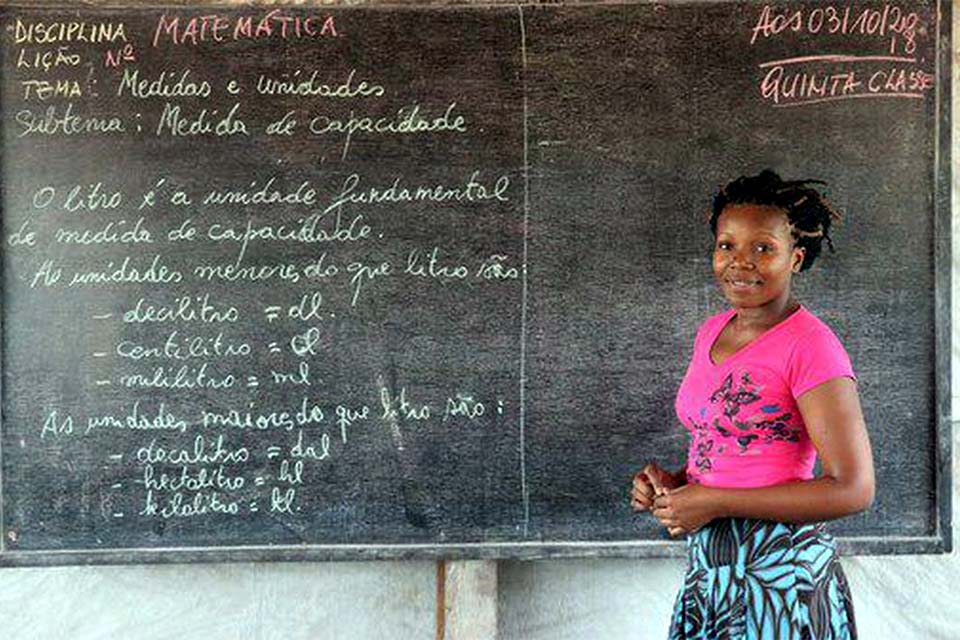 DISCIPLINA MATEMÁTICA
LIÇÃO Nº
TEMA: Medidas e unidades.
Subtema: Medida de capacidade.
O litro é a unidade fundamental
de medida de capacidade.
As unidades menores do que litro são:
- decilitro = dl.
- centilitro = cl
- mililitro = ml.
As unidades maiores do que litro são:
- decalitro = dal
- hectolitro = hl
- kilolitro = kl.
Aos 03/10/2018
QUINTA CLASSE